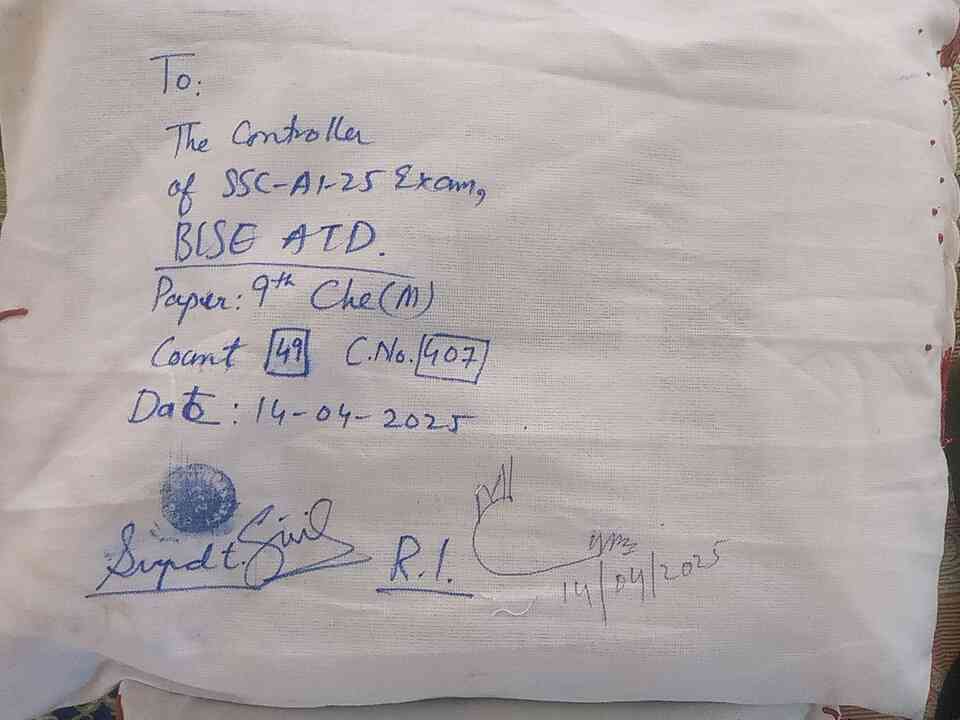 To:
The Controller
of SSC-A1-25 Exam,
BISE ATD.
Paper: 9th Che(M)
Count 49 C.No. 407
Date: 14-04-2025
Supdt. R.I.
14/04/2025